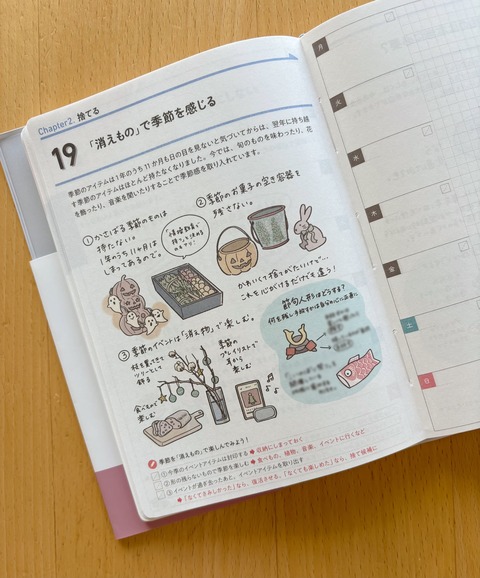 Chapter2. 捨てる
19
「消えもの」で季節を感じる
季節のアイテムは1年のうち11か月も日の目を見ないと気づいてからは、翌年に持ち越
す季節のアイテムはほとんど持たなくなりました。今では、旬のものを味わったり、花
を飾ったり、音楽を聞いたりすることで季節感を取り入れています。
①かさばる季節のものは
持たない。
1年のうち11ヶ月は
しまってあるので。
②季節のお菓子の空き容器を
残さない。
かわいくて捨てがたいけど…
これを心がけるだけでも違う!
③季節のイベントは「消え物」で楽しむ。
枝を置いて
ツリーとして
飾る
食べもので
楽しむ
季節の
プレイリストで
耳から
楽しむ
節句人形はどうする?
何を残し手放すかは自分の心にお達に
季節を「消えもの」で楽しんでみよう!
①今季のイベントアイテムは封印する➡収納にしまっておく
②形の残らないもので季節を楽しむ➡食べもの、植物、音楽、イベントに行くなど
③イベントが過ぎ去ったあと、イベントアイテムを取り出す
➡「なくてさみしかった」なら、復活させる。「なくても楽しめた」なら、捨て候補に
月
火
水
木
金
土
日